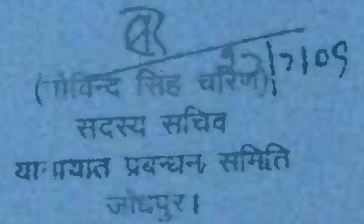 (गोविन्द सिंह चारण)
सदस्य सचिव
यातायात प्रबन्धन समिति
जोधपुर।